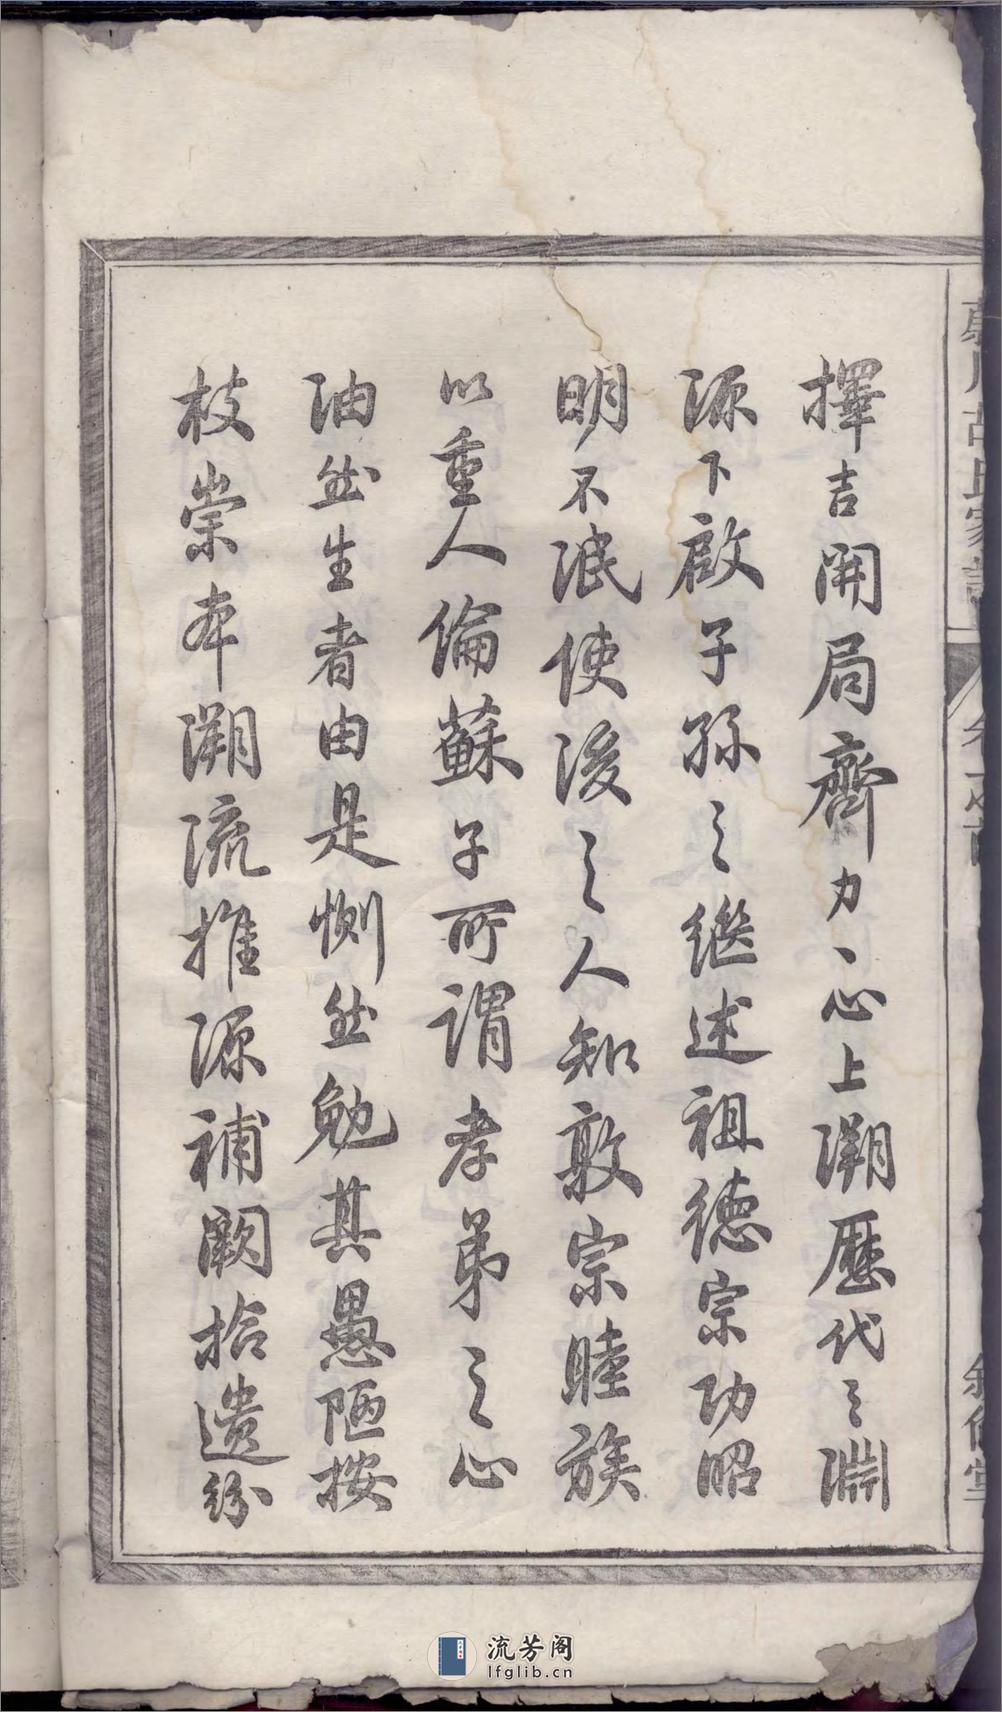 擇吉開局齊力、心上溯歷代之淵
源下啟子孫之継述祖徳宗功昭
明不泯使後之人知敦宗睦族
以重人倫蘇子所謂孝弟之心
油然生者由是惻然勉其愚陋按
枝崇本溯流推源補闕拾遺紛
胡氏家譜
流芳阁
lfglib.cn